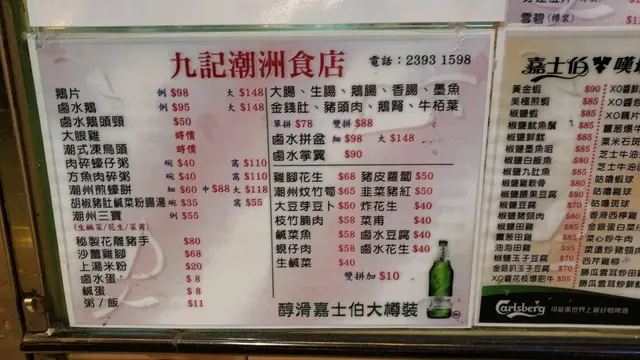 雪碧(樽裝)
九記潮洲食店
電話:2393 1598
鵝片 例 $98 大 $148
鹵水鵝 例 $95 大 $148
鹵水鵝頭頸 $50
大眼雞 時價
潮式凍烏頭 時價
肉碎蠔仔粥 碗 $40 窩 $110
方魚肉碎粥 碗 $40 窩 $110
潮州煎蠔餅 細 $60 中 $88 大 $118
胡椒豬肚鹹菜粉腸湯 碗 $35 窩 $55
潮州三寶 例 $55
(生鹹菜/花生/菜甫)
秘製花雕豬手 $80
沙薑雞腳 $68
上湯米粉 $20
鹵水蛋 $8
鹹蛋 $8
粥/飯 $11
大腸、生腸、鵝腸、香腸、墨魚
金錢肚、豬頭肉、鵝腎、牛栢葉
單拼 $78 雙拼 $88
鹵水拼盆 細 $98 大 $148
鹵水掌翼 $90
雞腳花生 $68 豬皮蘿蔔 $50
潮州炆竹筍 $65 韭菜豬紅 $50
大豆芽豆卜 $50 炸生花 $40
枝竹腩肉 $58 菜甫 $40
鹹菜魚 $58 鹵水豆腐 $40
蜆仔肉 $58 鹵水花生 $40
生鹹菜 $40
雙拼加 $10
醇滑嘉士伯大樽裝
嘉士伯 嘆
黃金蝦 $90
美極煎蝦 $85
椒鹽蝦 $85
椒鹽魷魚鬚 $85
椒鹽鮮魷 $85
椒鹽墨魚咀 $85
椒鹽白飯魚 $80
椒鹽九肚魚 $85
椒鹽雞軟骨 $80
椒鹽豆腐 $70
椒鹽豬頸肉 $80
Carlsberg 可能係世界上最好嘅啤酒